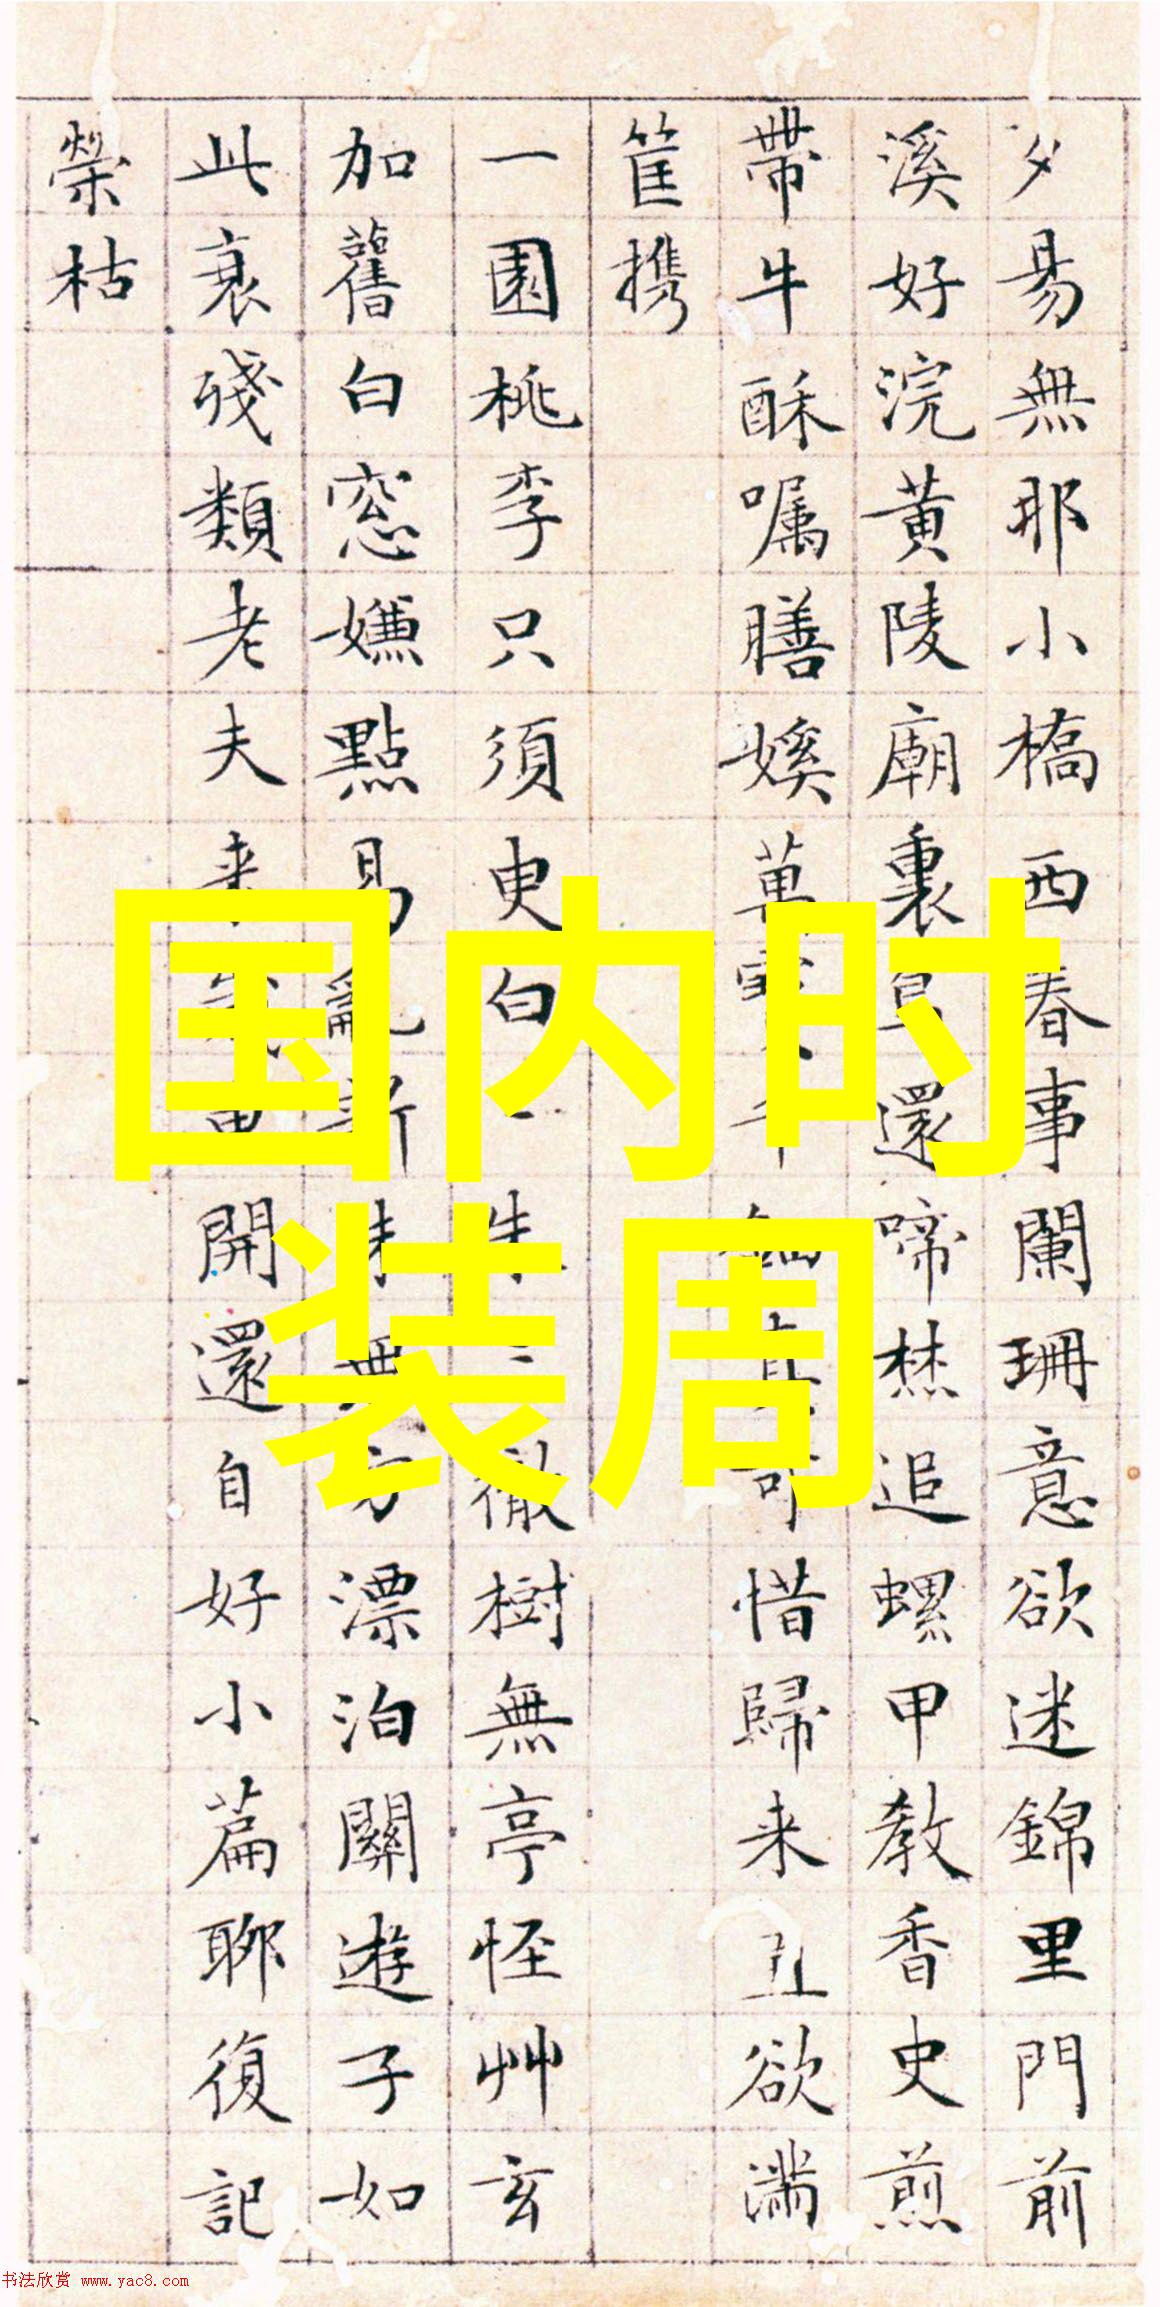 夕易無那小橋西春事闌珊意欲迷錦里門前
溪好浣黃陵廟裏還啼焚追螺甲教香史煎
帶牛酥嘱膳㜎萬可惜歸来丑欲滿
筐携
一園桃李只須臾白朱徹樹無亭怪艸玄
加舊白窓嫌點易亂新無方漂泊關遊子如
此衰殘類老夫来開還自好小篇聊復記
榮枯
国内时
装周
书法欣赏 www.yac8.com